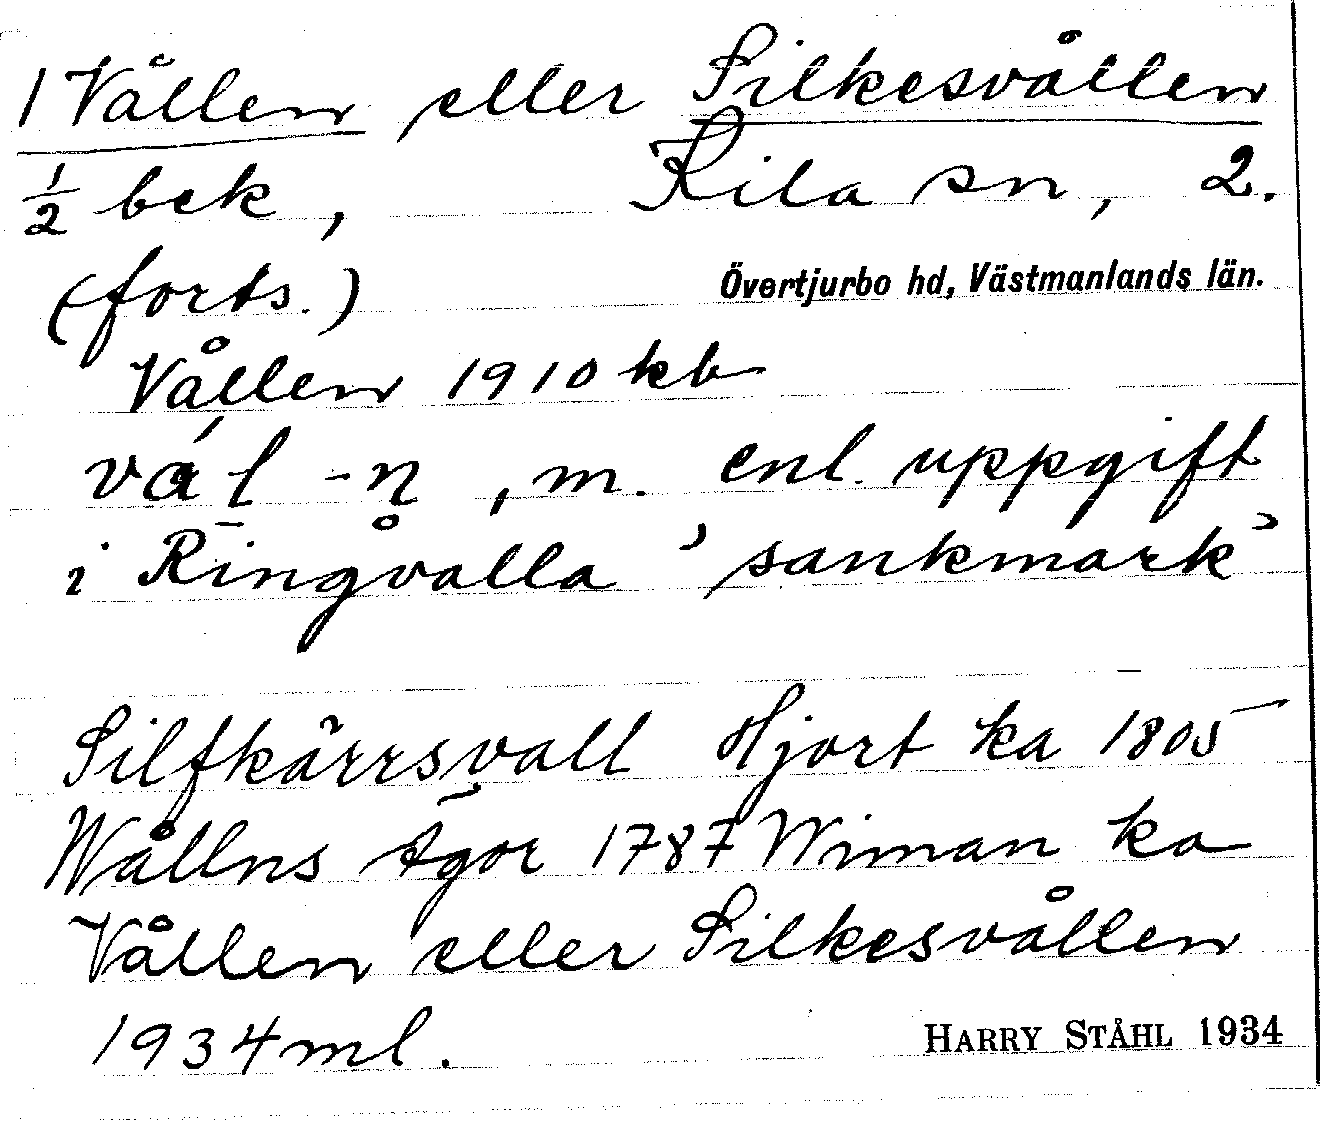 1 Vållen eller Silkesvållen
1/2 bek, Kila sn, 2.
(forts.) Övertjurbo hd, Västmanlands län.
Vållen 1910 kb
vál -n̥, m. enl. uppgift
i Ringvålla ’sankmark’
Silfkärrsvall Hjort ka 1805
Wållns Ägor 1787 Wiman ka
Vållen eller Silkesvållen
1934 ml. HARRY STÅHL 1934